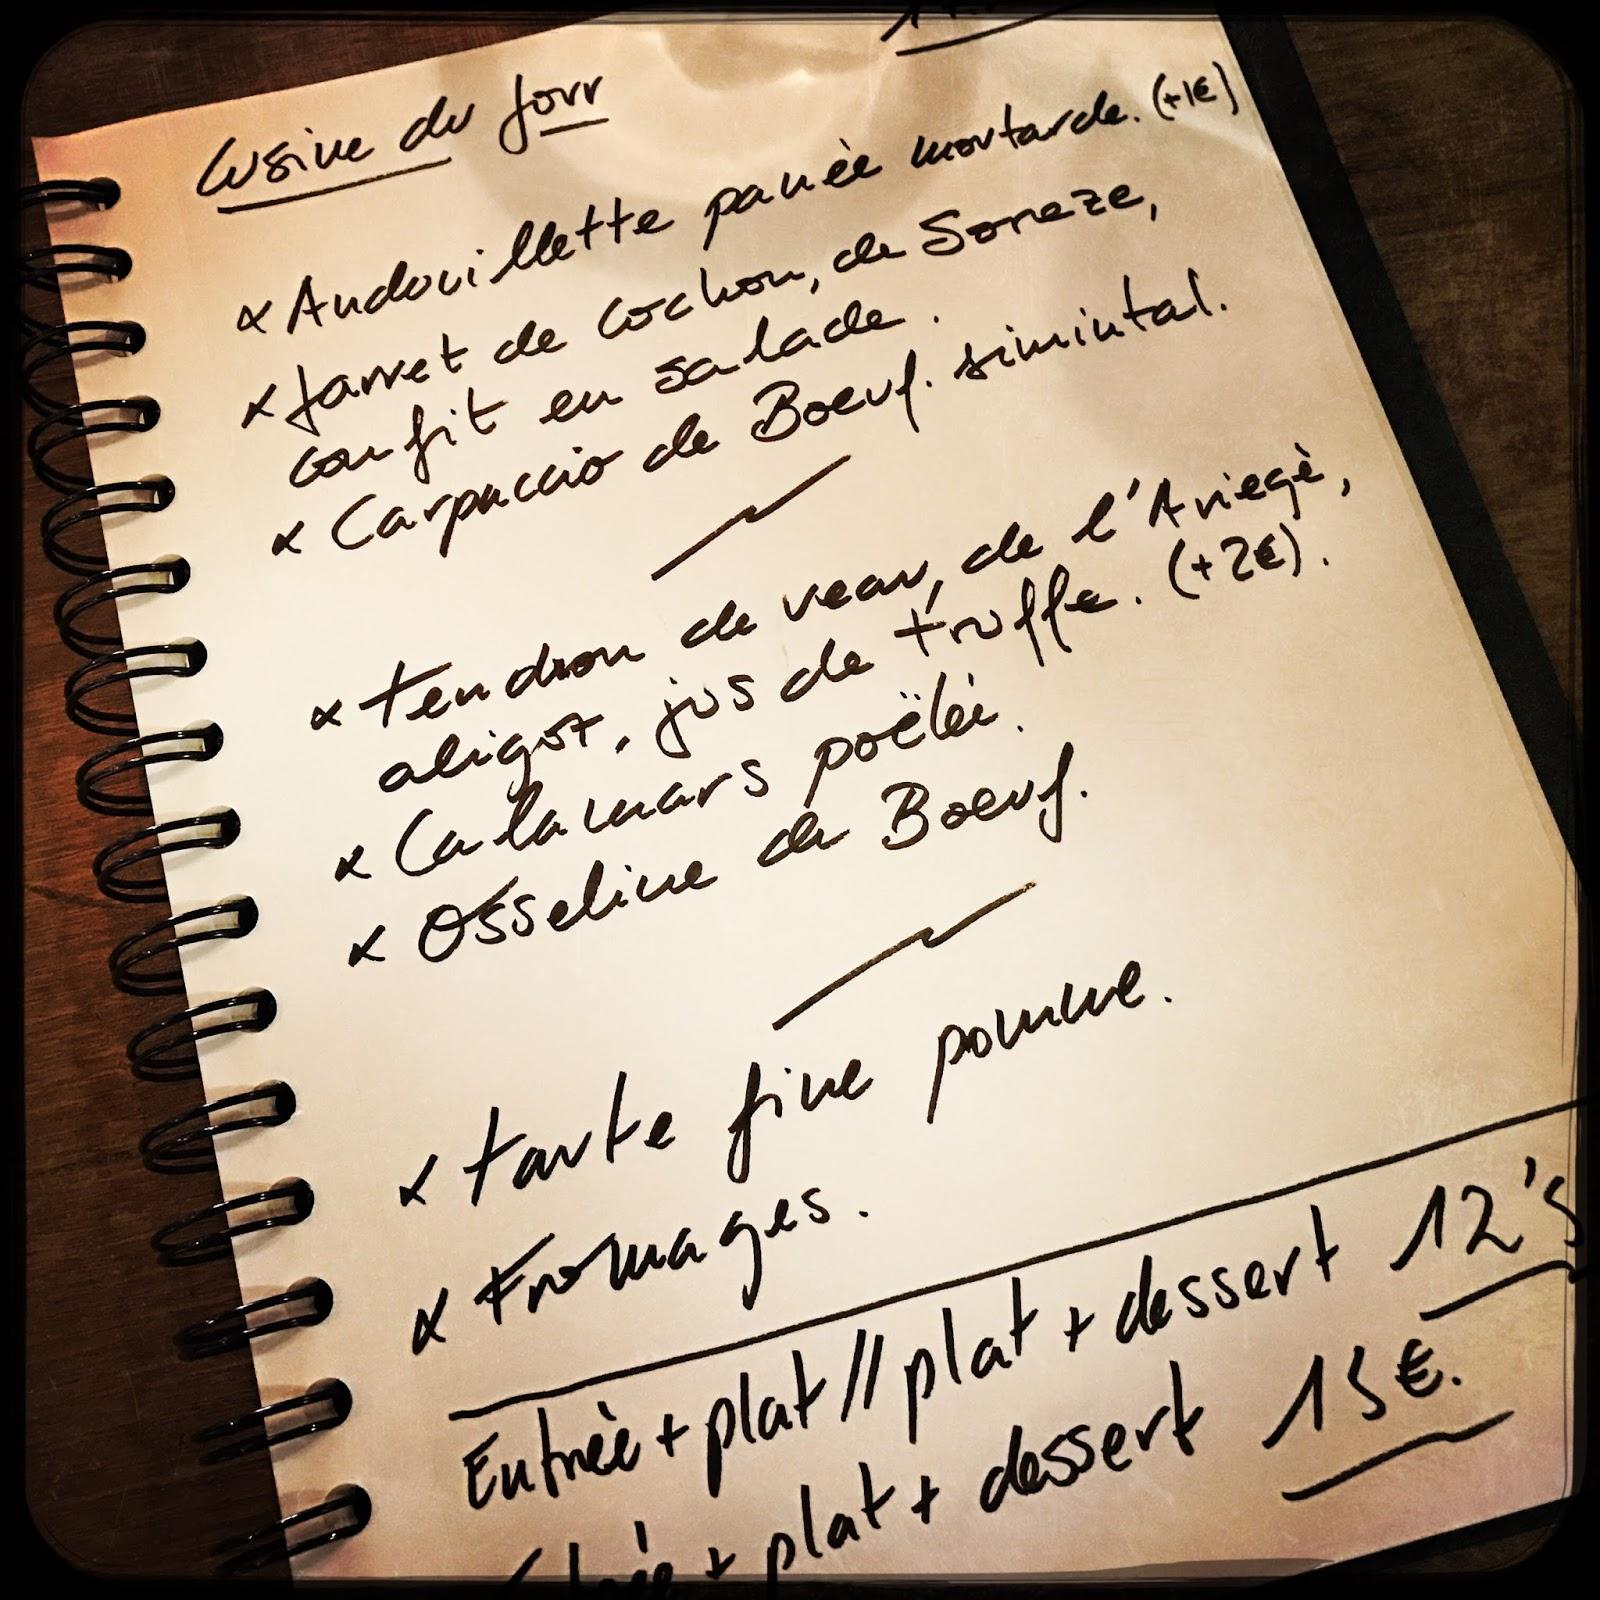 Cusine du Jour
x Andouillette panèe moutarde. (+1€)
x Jarret de Cochon, de Soreze,
confit en salade.
x Carpaccio de Boeuf. simintal.
x tendron de veau, de l'Ariegè,
aligot, jus de truffe. (+2€).
x Calamars poëlé.
x Osseline de Boeuf.
x tarte fine pomme.
x Fromages.
Entrèe + plat // plat + dessert 12's
+ plat + dessert 15€.